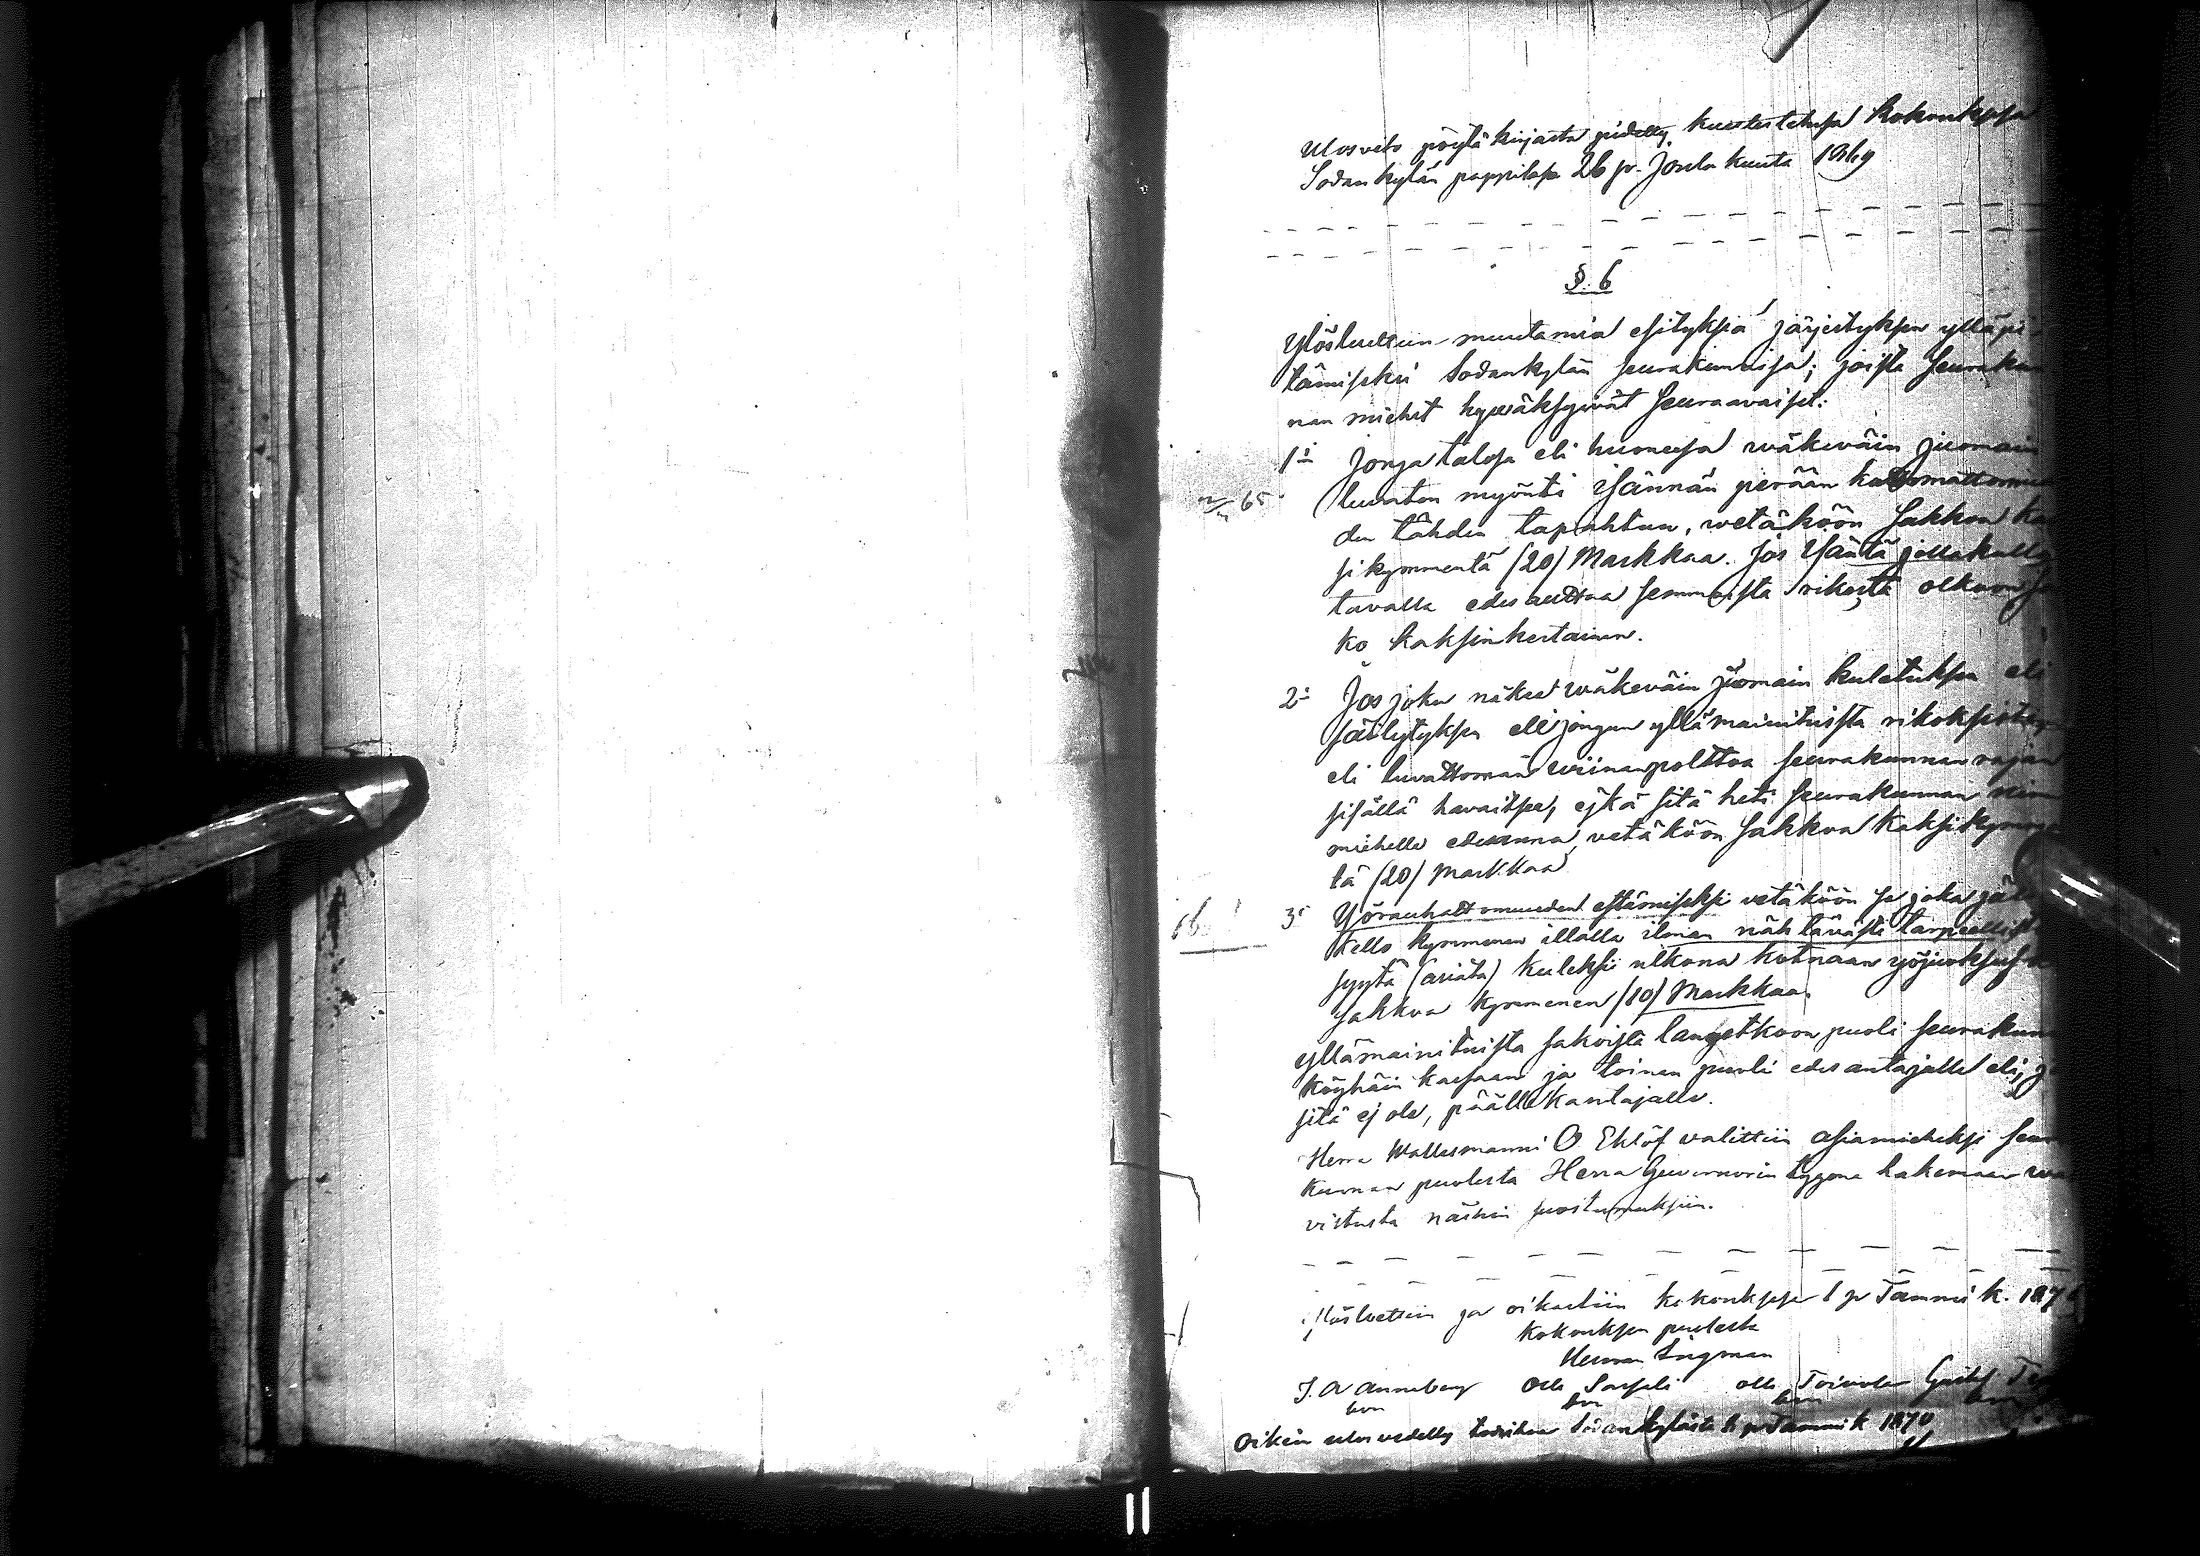 Ulosveto pöytäkirjasta pidetty kuntastelusa kokouksesa
Sodankylän pappilasa 26 p. Joulukuuta 1869
§. 6
Ylösluettiin muutamia esityksiä järjestyksen ylläpi-
tämiseksi Sodankylän seurakunnisa; joista seurakun
nan miehet hyväksyivät seuraavaiset:
1:i Jonga talosa eli huoneesa wäkeväin juomain
65 luvaton myönti isännän perään katsomattomuu
den tähden tapahtuu, vetäköön sakkoa ka
si kymmentä (20) Markkaa. Jos Isäntä jollakulla
tavalla edesauttaa semmoista rikosta olkoon sa
ko kaksinkertainen.
2:i Jos joku näkee wäkeväin juomain kuletuksen eli
säilytyksen eli jongun yllämainituista rikoksista
eli luvattoman viinanpolttoa seurakunnan rajan
sisällä havaitsee, ejkä sitä heti seurakunnan nim
miehelle edesanna, vetäköön sakkoa kaksikymmen
tä (20) Markkaa
3:i Yörauhattomuuden estämiseksi vetäköön se joka jäl
kello kymmenen illalla ilman nähtävästi tarpeellist
syytä (asiata) kuleksii ulkona kotoaan yöjuoksus
sakkoa kymmenen (10) Markkaa.
yllämainituista sakoista langetkoon puoli seurakun
köyhäin kassaan ja toinen puoli edesantajalle eli, j
sitä ej ole, päällekantajalle.
Herra Wallesmanni O Eklöf valittiin asiamieheksi seu
kunnan puolesta Herra Guvernörin tygönä hakemaan va
vistusta näihin suostumuksiin.
Ylösluettiin ja oikastiin kokouksesa 1 p Tammik. 187
Kokouksen puolesta
Herman Lingman
J. A Anneberg Olli Sarjeli Olli Toivola Gustf
Oikein ulosvedetty todistaa Sodankylästä p Tammik 1870